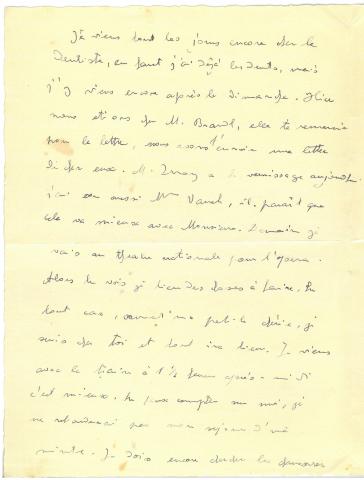 Je viens tout les jours encore chez le
dentiste, en faut j'ai déjà les dents, mais
j'y viens encore après le dimanche. Hier
nous étions chez M. Brandl, elle te remercie
pour la lettre, nous avons une lettre
d'chez eux. M. a le vernissage aujourd.
j'ai vu aussi Mme Vanek, il paraît que
cela va mieux avec Monsieur. Demain je
vais au theatre nationale pour l'opera.
Alors tu vois j'ai bien des choses à faire. En
tout cas, ma petite chérie, je
suis chez toi et tout ira bien. Je viens
avec le train à 1 1/2 heure après-midi
c'est mieux. Tu peux compter sur moi, je
ne retarderai pas mon sejour d'une
minute. Je dois encore chercher les